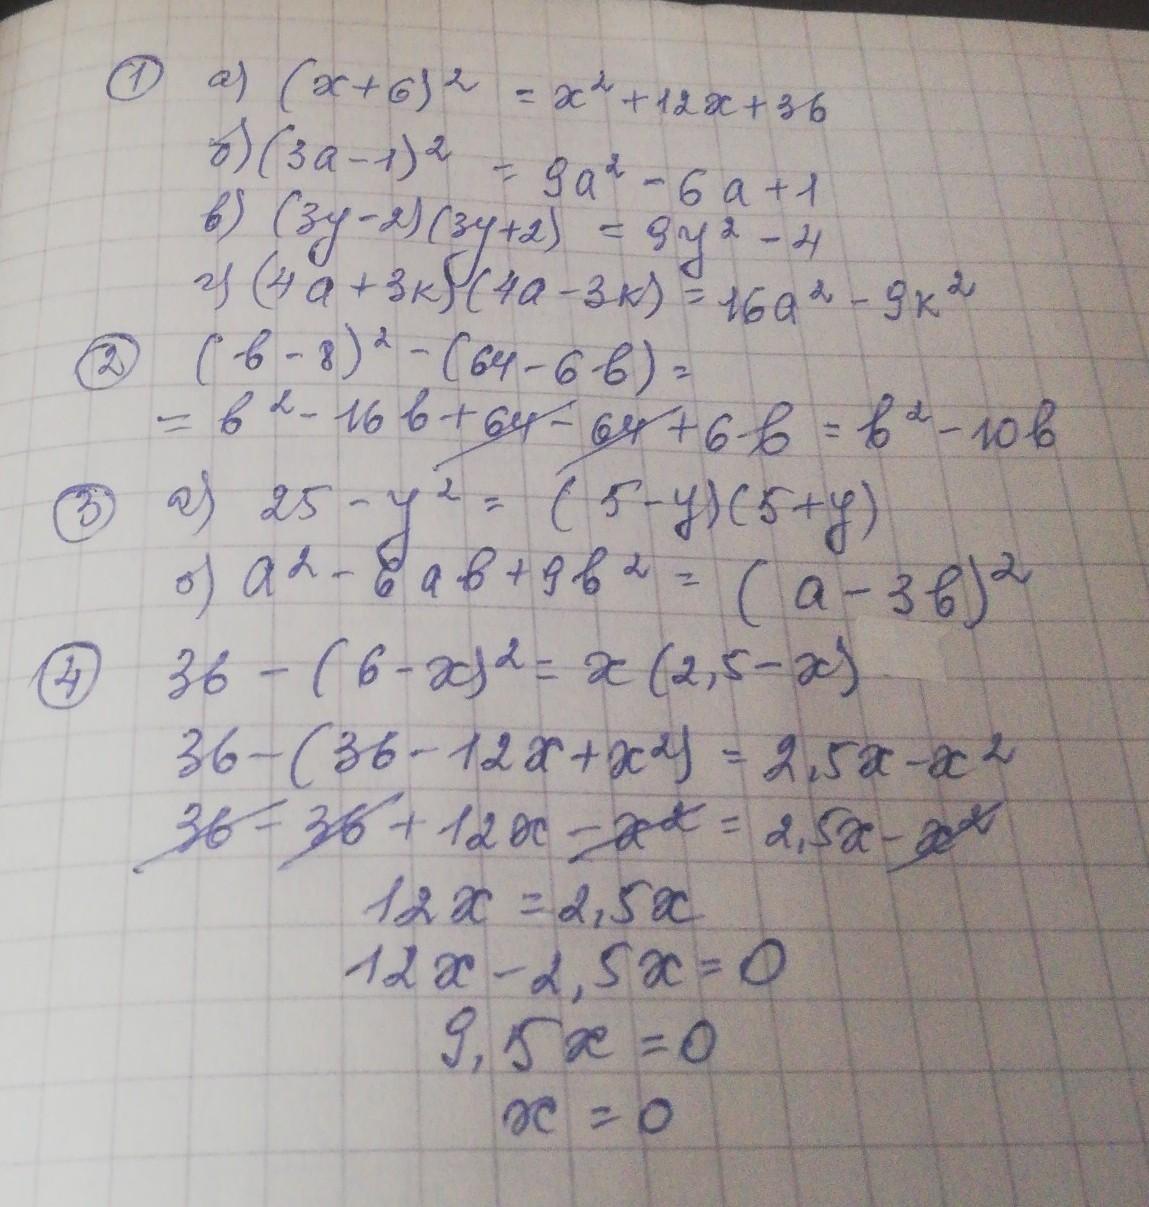 ① а) (x+6)² = x²+12x+36
б) (3a-1)² = 9a²-6a+1
в) (3y-2)(3y+2) = 9y²-4
г) (4a+3к)(4a-3к) = 16a²-9к²
② (в-8)²-(64-6в)=
= в²-16в+64-64+6в = в²-10в
③ а) 25-y² = (5-y)(5+y)
б) a²-6aв+9в² = (a-3в)²
④ 36-(6-x)² = x(2,5-x)
36-(36-12x+x²) = 2,5x-x²
36-36+12x-x² = 2,5x-x²
12x = 2,5x
12x-2,5x=0
9,5x=0
x=0